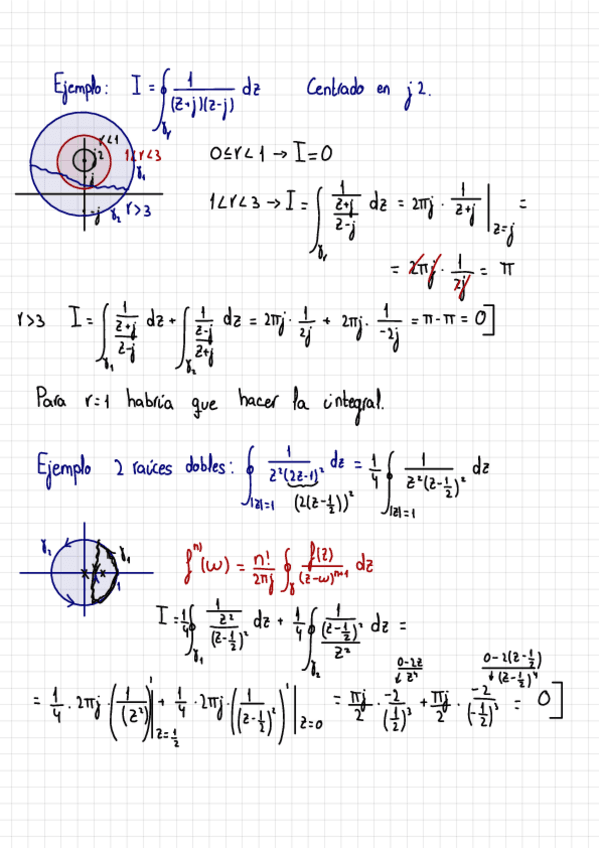 Ejemplo: I = ∮_γr 1/((z+j)(z-j)) dz Centrado en j2.
r<1
j2
1<r<3
γ1
j
-j
γ2
r>3
0≤r<1 → I=0
1<r<3 → I = ∫_γr (1/(z+j))/(z-j) dz = 2πj · 1/(z+j) |_z=j =
= 2πj · 1/2j = π
r>3 I = ∫_γ1 (1/(z+j))/(z-j) dz + ∫_γ2 (1/(z-j))/(z+j) dz = 2πj · 1/2j + 2πj · 1/-2j = π-π = 0]
Para r=1 habría que hacer la integral.
Ejemplo 2 raíces dobles: ∮_|z|=1 1/(z²(2z-1)²) dz = 1/4 ∮_|z|=1 1/(z²(z-1/2)²) dz
(2(z-1/2))²
γ2
γ1
1
f^n)(w) = n!/2πj ∮_γ f(z)/(z-w)^n+1 dz
I = 1/4 ∮_γ1 (1/z²)/(z-1/2)² dz + 1/4 ∮_γ2 (1/(z-1/2)²)/z² dz =
(0-2z)/z⁴ (0-2(z-1/2))/(z-1/2)⁴
= 1/4 · 2πj · (1/(z²))' |_z=1/2 + 1/4 · 2πj · (1/(z-1/2)²)' |_z=0 = πj/2 · -2/(1/2)³ + πj/2 · -2/(-1/2)³ = 0]